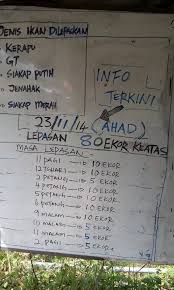 JENIS IKAN DILEPASKAN
- KERAPU
- GT
- SIAKAP PUTIH
- JENAHAK
- SIAKAP MERAH
INFO
TERKINI
23/11/14 (AHAD)
LEPASAN 80 EKOR KEATAS
MASA LEPASAN
11 PAGI → 10 EKOR
12 TGHARI → 10 EKOR
2 PETANG → 5 EKOR
4 PETANG → 10 EKOR
5 PETANG → 10 EKOR
6 PETANG → 10 EKOR
9 MALAM → 10 EKOR
10 MALAM → 5 EKOR
11 MALAM → 5 EKOR
2 PAGI → 5 EKOR